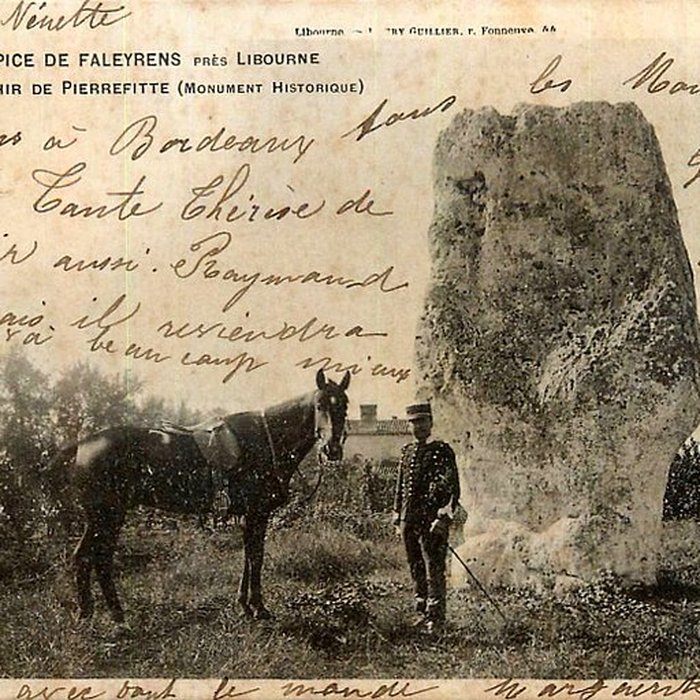 Nénette
Libourne GUILLIER, r. Fonneuve, 44
PICE DE FALEYRENS PRÈS LIBOURNE
HIR DE PIERREFITTE (MONUMENT HISTORIQUE)
à Bordeaux tous les
Tante Thérèse de
ir aussi. Raymond
ais il reviendra
à beaucoup mieux
avec tout le monde